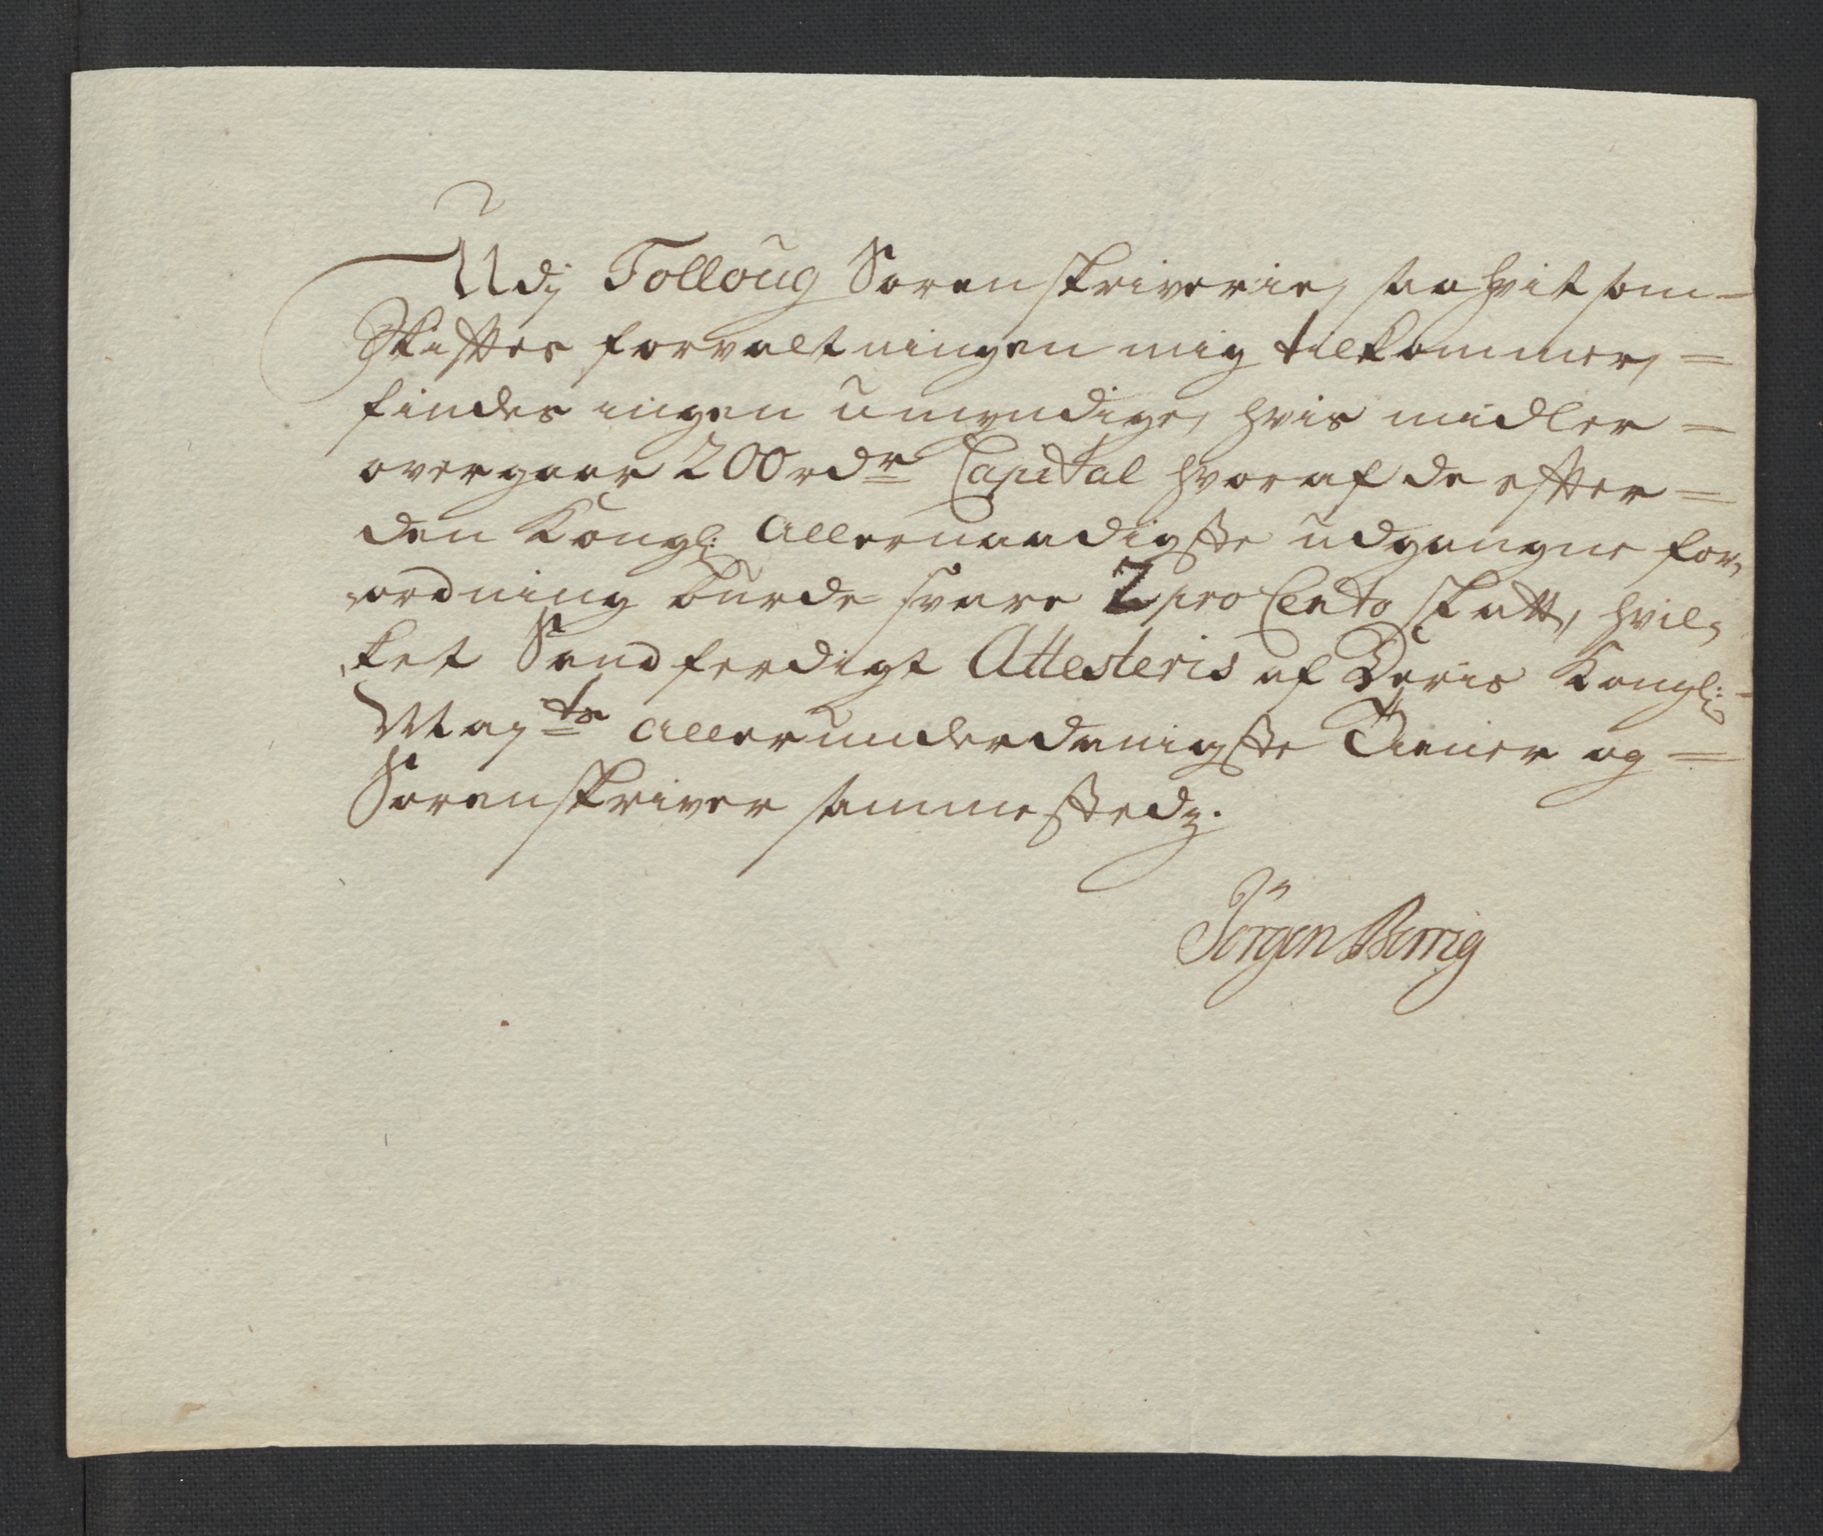 Udj Folloug Sorenskriverie, saa hvit som =
Skiftes forvaltningen mig tilkommer, =
findes ingen umyndige, hvis midler =
overgaar 200 rdr Capital hvoraf de efter =
den Kongl: Allernaadigste udgangne for,
,ordning burde svare 2 pro Cento skatt, hvil,
,ket Sandferdigt Attesteris af Deris Kongl: =
Mayts allerunderdanigste Tiener og =
Sorenskriver sammestedz.
Jørgen Berrig